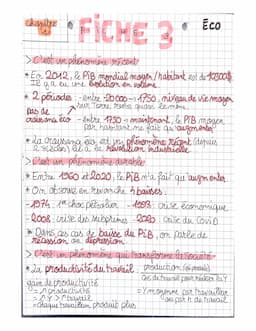 Chapitre 1
FICHE 3
Éco
> C'est un phénomène récent
* En 2012, le PIB mondial moyen/habitant est de
Il y a eu une évolution en volume.
* 2 périodes - entre -20 000 → 1750, niveau de vie moyen
pas de sur Terre
croissance éco - entre 1750 → maintenant, le PIB moyen
par habitant ne fait qu'augmenter
* La croissance éco est un phénomène récent (depuis
2 siècles) dû à la révolution industrielle
> C'est un phénomène durable
* Entre 1960 et 2020, le PIB n'a fait qu'augmenter
* On observe en revanche 4 baisses :
- 1974 : 1er choc pétrolier - 1993 : crise économique
- 2008 : crise des subprimes - 2020 : crise du Covid
* Dans ces cas de baisse du PIB, on parle de
récession ou dépression
> C'est un phénomène qui transforme la société
* La productivité du travail : production
gain de productivité
= ↗ productivité = Y moyenne par travailleur
= ↗ Y > ↗ travail ou par h de travail
= chaque travailleur produit plus